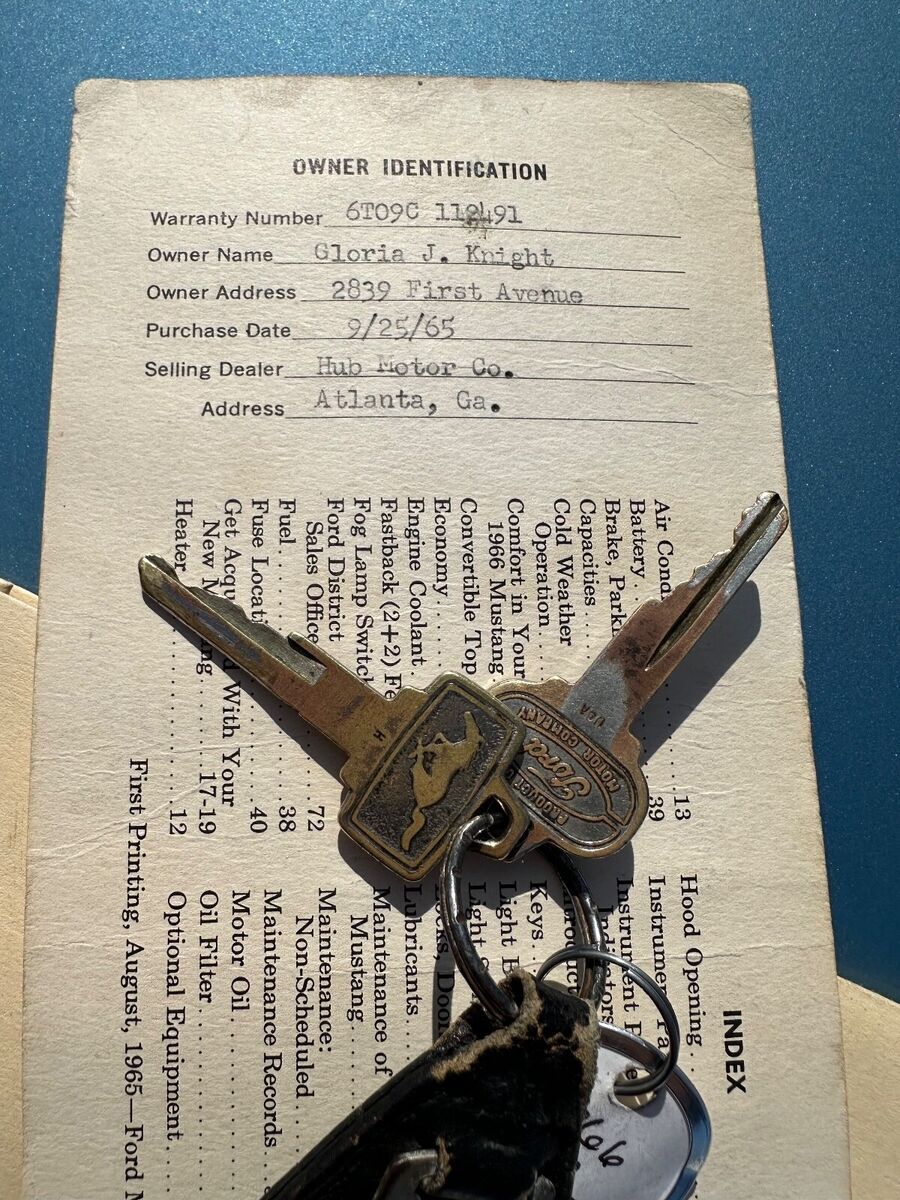 OWNER IDENTIFICATION
Warranty Number 6T09C 112491
Owner Name Gloria J. Knight
Owner Address 2839 First Avenue
Purchase Date 9/25/65
Selling Dealer Hub Motor Co.
Address Atlanta, Ga.
INDEX
Air Cond 13
Battery 39
Brake, Park
Capacities
Cold Weather
Operation
Comfort in Your
1966 Mustang
Convertible Top
Economy
Engine Coolant
Fastback (2+2) Fe
Fog Lamp Switch
Ford District
Sales Office 72
Fuel 38
Fuse Locati 40
Get Acqu d With Your
New M ng 17-19
Heater 12
Hood Opening
Instrument Pa
Instrument
Indicators
Keys
Light
Light
Locks, Door
Lubricants
Maintenance of
Mustang
Maintenance:
Non-Scheduled
Maintenance Records
Motor Oil
Oil Filter
Optional Equipment
First Printing, August, 1965—Ford M
H
PRODUCT O
Ford
MOTOR COMPANY
USA
66